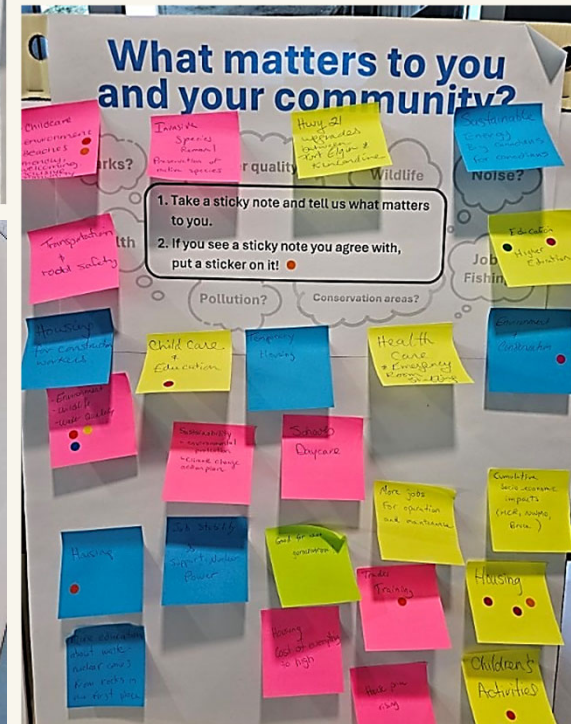 What matters to you
and your community?
Childcare
environment
Beaches
Invasive
Species
Removal
Preservation of
native species
Hwy 21
upgrades
between
Port Elgin &
Kincardine
Sustainable
Energy
for Canadians
rks?
r quality
Wildlife
Noise?
1. Take a sticky note and tell us what matters
to you.
2. If you see a sticky note you agree with,
put a sticker on it!
Transportation
&
road safety
lth
Education
Higher
Education
Job
Fishin
Pollution?
Conservation areas?
Housing
for construction
workers
Child Care
&
Education
Temporary
Housing
Health
Care
& Emergency
Room
Staffing
Environment
Construction
- Environment
- Wildlife
- Water Quality
Sustainability
- environmental
protection
- Climate change
action plan
Daycare
More jobs
for operation
and maintenance
Cumulative
socio-economic
impacts
(MCR, NWMO,
Bruce)
Housing
Job Stability
Support Nuclear
Power
Trades
Training
Housing
More education
about waste
nuclear comes
from rocks in
the first place
Housing
Cost of everything
so high
Children's
Activities